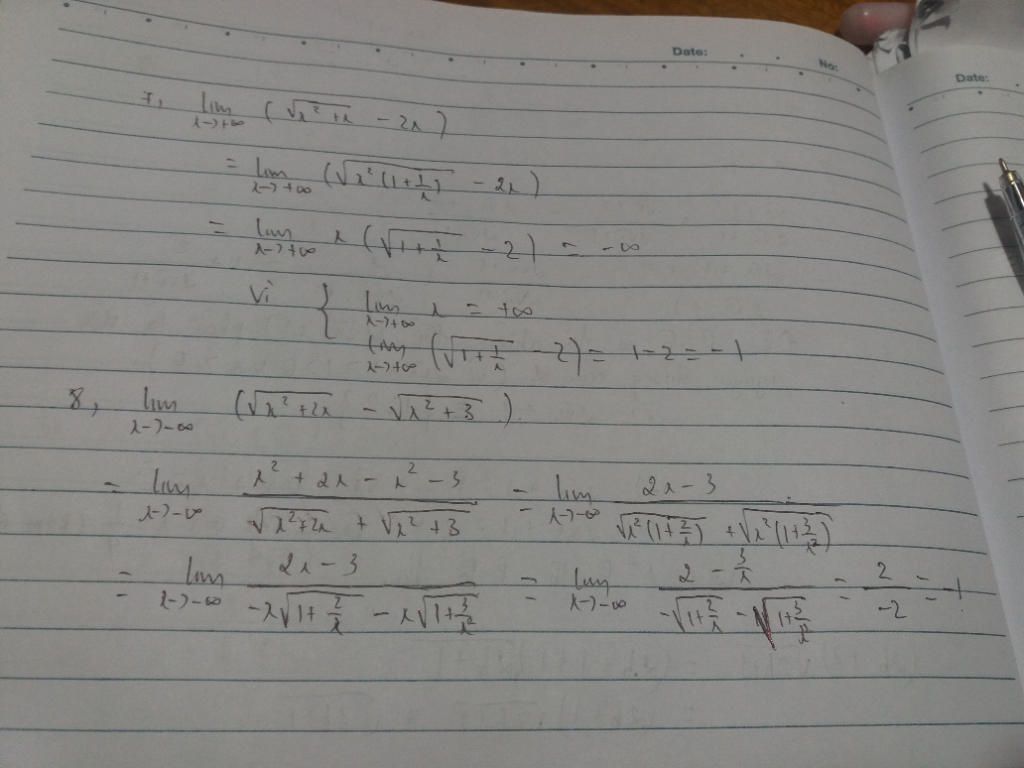 Date:
No:
Date:
7, lim x->+∞ (√(x² + x) - 2x)
= lim x->+∞ (√(x²(1 + 1/x)) - 2x)
= lim x->+∞ x (√(1 + 1/x) - 2) = -∞
Vì { lim x->+∞ x = +∞
lim x->+∞ (√(1 + 1/x) - 2) = 1 - 2 = -1
8, lim x->-∞ (√(x² + 2x) - √(x² + 3)).
= lim x->-∞ (x² + 2x - x² - 3)/(√(x² + 2x) + √(x² + 3)) = lim x->-∞ (2x - 3)/(√(x²(1 + 2/x)) + √(x²(1 + 3/x²)))
= lim x->-∞ (2x - 3)/(-x√(1 + 2/x) - x√(1 + 3/x²)) = lim x->-∞ (2 - 3/x)/(-√(1 + 2/x) - √(1 + 3/x²)) = 2/-2 = -1